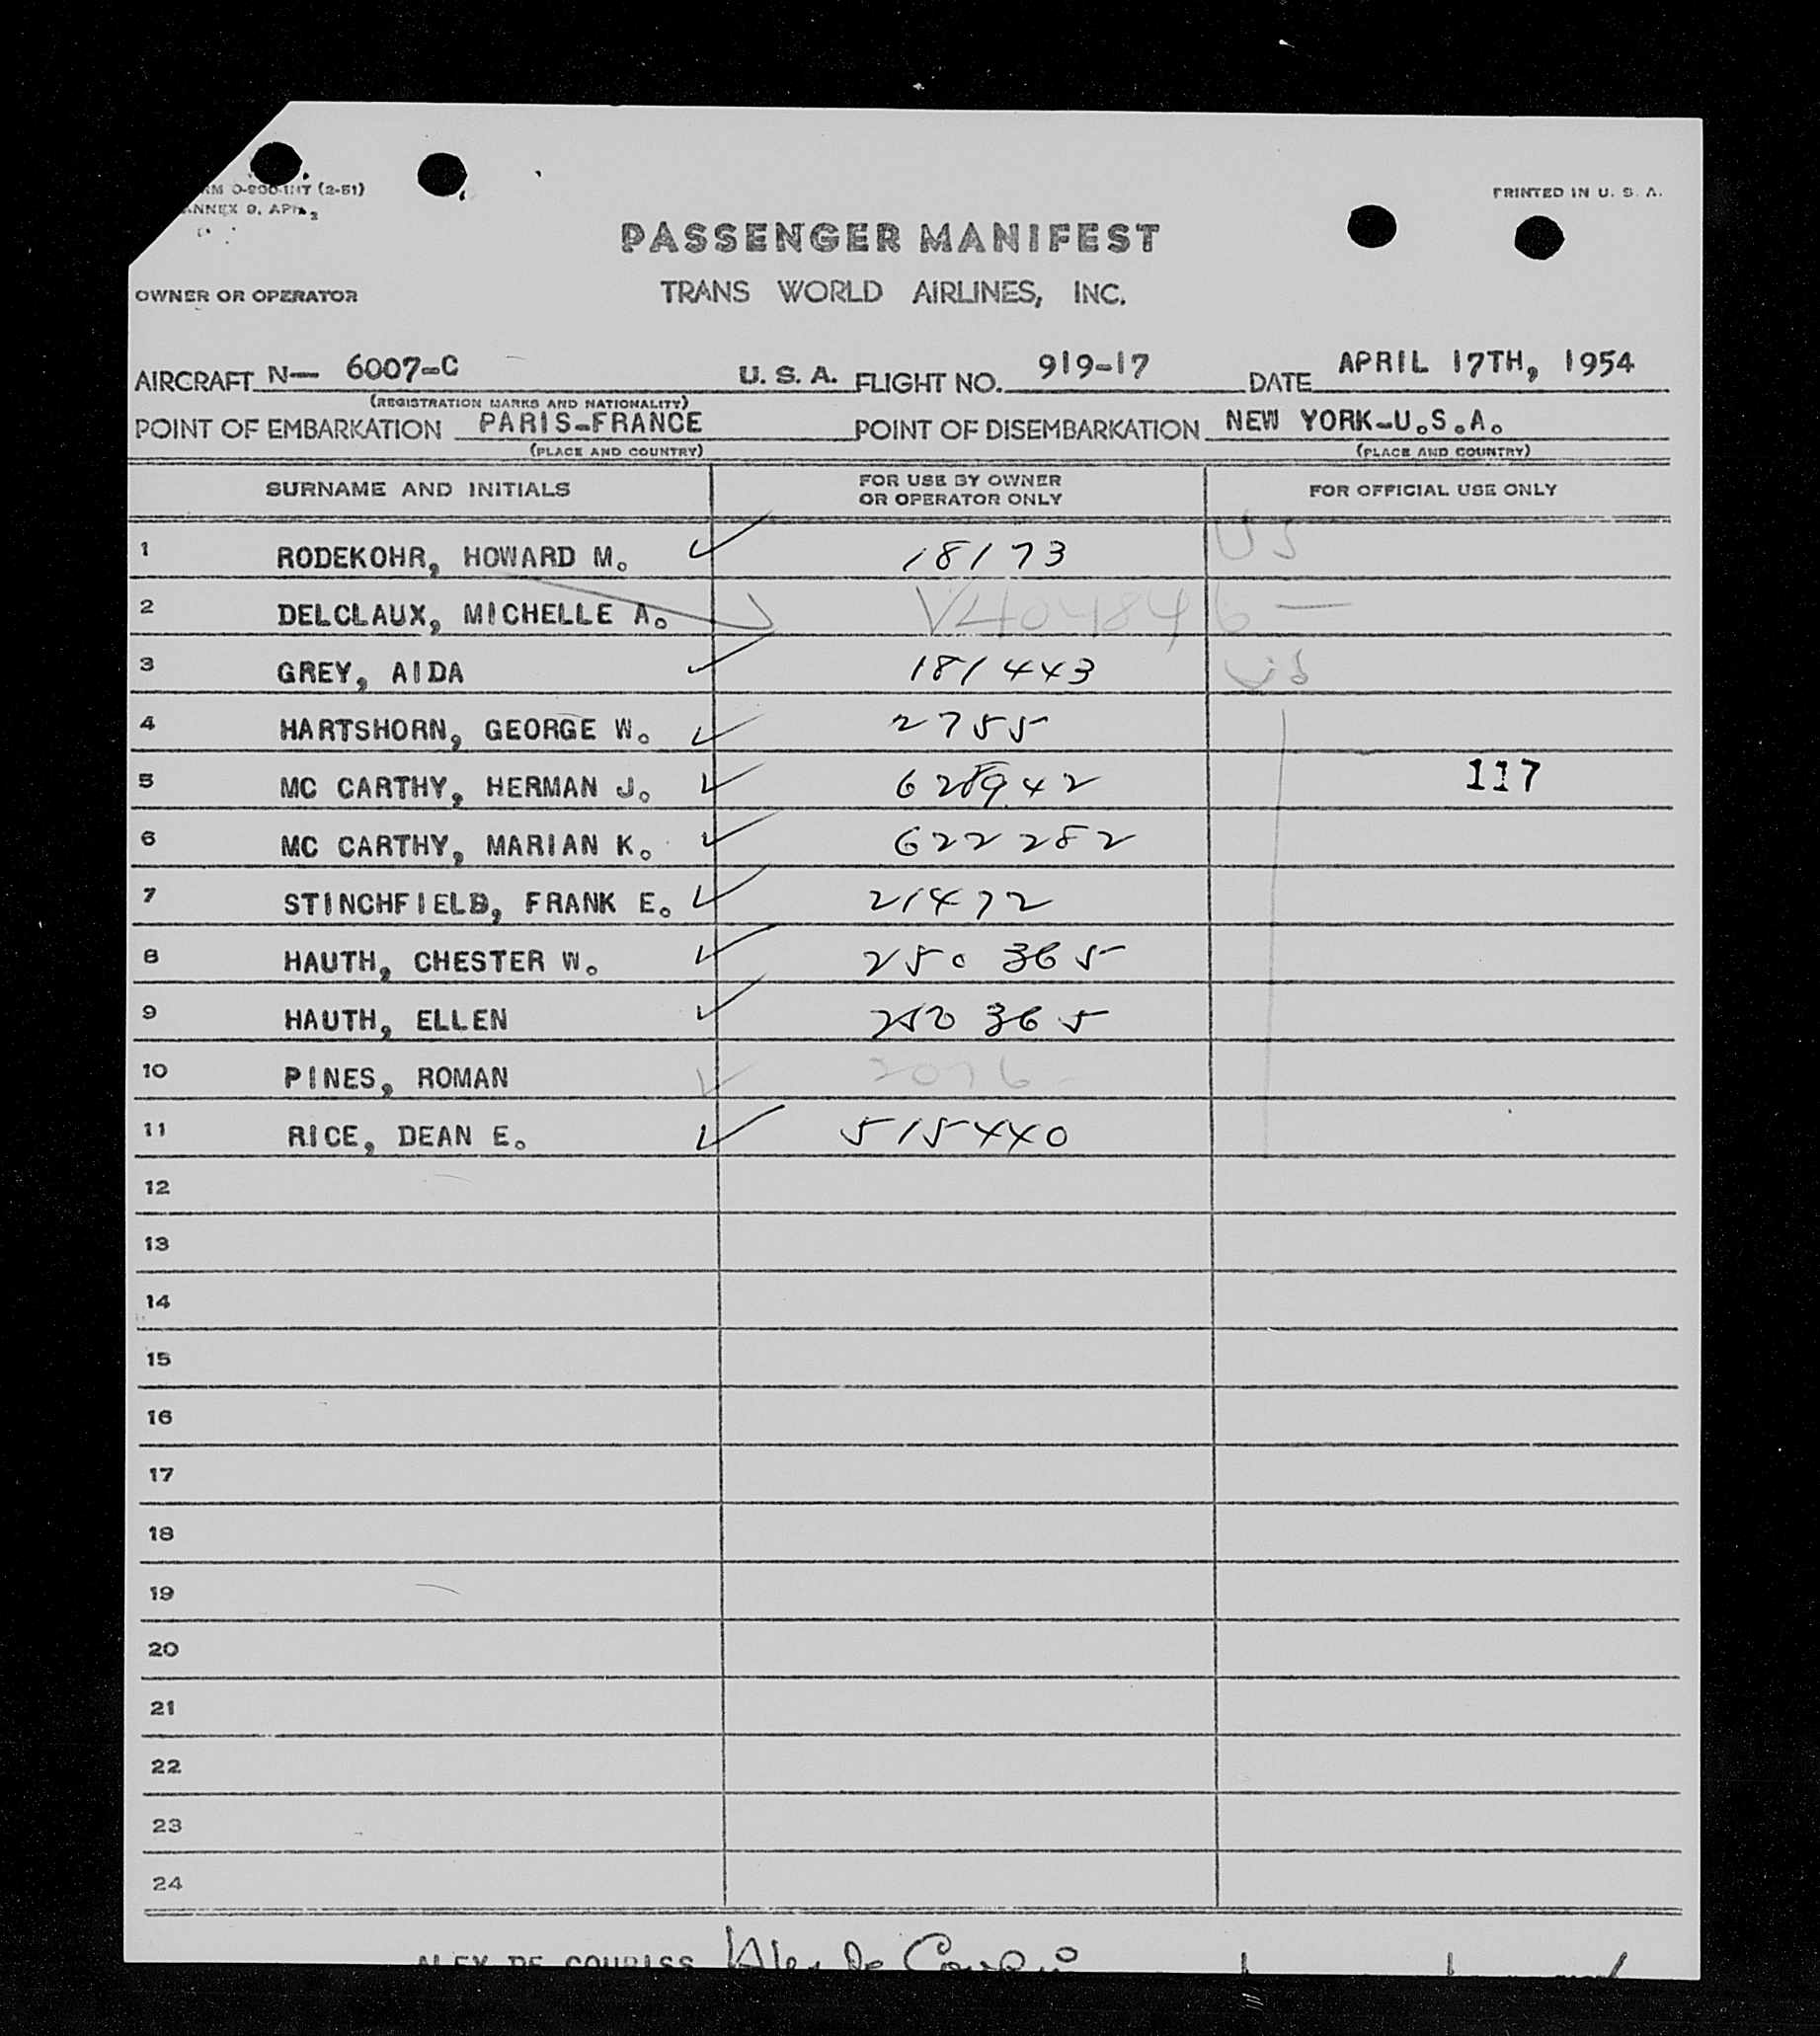 RM O-900-INT (2-51)
ANNEX 9, AP
PRINTED IN U. S. A.
PASSENGER MANIFEST
OWNER OR OPERATOR TRANS WORLD AIRLINES, INC.
AIRCRAFT N— 6007-C U. S. A. FLIGHT NO. 919-17 DATE APRIL 17TH, 1954
(REGISTRATION MARKS AND NATIONALITY)
POINT OF EMBARKATION PARIS-FRANCE POINT OF DISEMBARKATION NEW YORK-U.S.A.
(PLACE AND COUNTRY) (PLACE AND COUNTRY)
SURNAME AND INITIALS FOR USE BY OWNER OR OPERATOR ONLY FOR OFFICIAL USE ONLY
1 RODEKOHR, HOWARD M. ✓ 18173 US
2 DELCLAUX, MICHELLE A. ✓ V404846 —
3 GREY, AIDA ✓ 181443 US
4 HARTSHORN, GEORGE W. ✓ 2755
5 MC CARTHY, HERMAN J. ✓ 628942 117
6 MC CARTHY, MARIAN K. ✓ 622282
7 STINCHFIELD, FRANK E. ✓ 21472
8 HAUTH, CHESTER W. ✓ 250365
9 HAUTH, ELLEN ✓ 250365
10 PINES, ROMAN ✓ 2076
11 RICE, DEAN E. ✓ 515440
12
13
14
15
16
17
18
19
20
21
22
23
24
ALEX DE COURISS Alex de